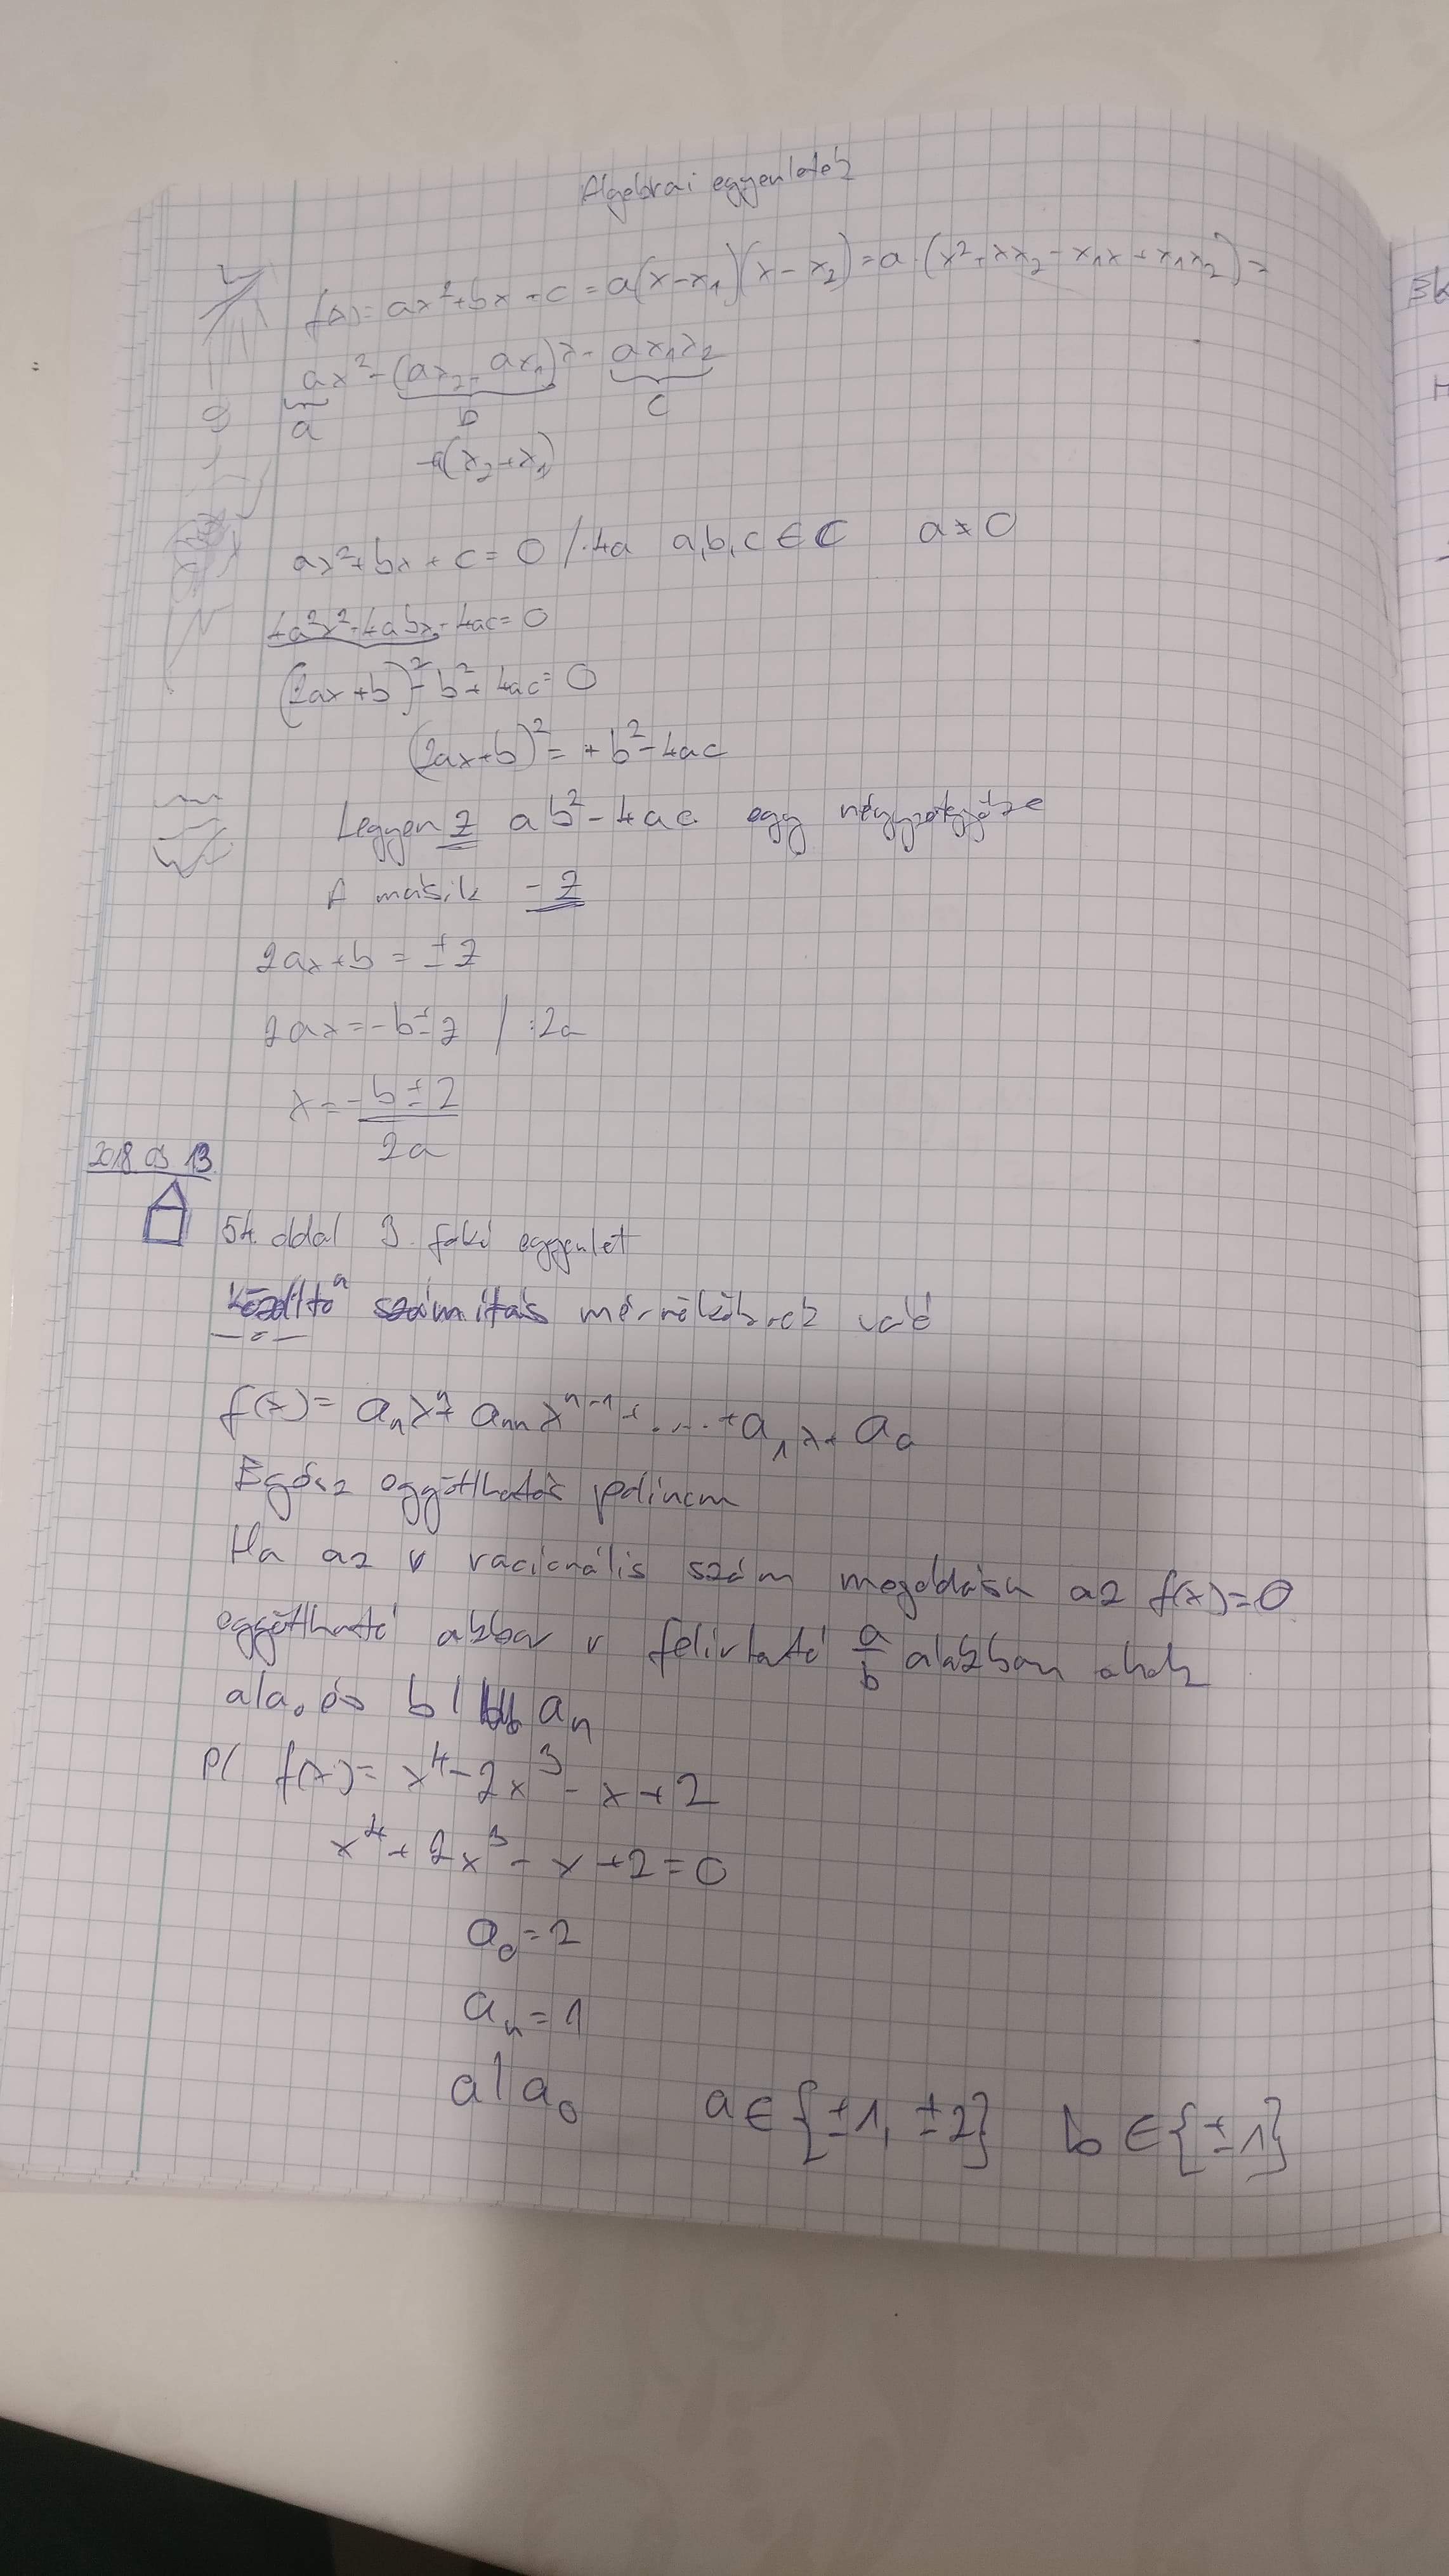 Algebrai eggyenletek
f(x)= ax²+bx+c = a(x-x₁)(x-x₂)=a·(x²+xx₂-x₁x+x₁x₂)=
ax²-(ax₂-ax₁)x-ax₁x₂
a b c
-a(x₂+x₁)
ax²+bx+c=0 /·4a a,b,c∈C a≠0
4a²x²-4abx-4ac=0
(2ax+b)²-b²+4ac=0
(2ax+b)²=+b²-4ac
Leggyen z a b²-4ac egy négyzetgyöke
A másik -z
2ax+b=±z
2ax=-b±z /:2a
x=-b±z
2a
2018 03 13
54. oldal 3. fokú eggyenlet
számitás mérnököknek való
f(x)= aₙxⁿ+ aₙₙxⁿ⁻¹+....+a₁x+a₀
Egész eggyütthatós polinom
Ha az v racionális szám megoldása az f(x)=0
eggyütható akkor v felirható a/b alakban ahol
a|a₀ és b| aₙ
Pl f(x)= x⁴-2x³-x+2
x⁴+2x³-x+2=0
a₀=2
aₙ=1
a|a₀ a∈{±1,±2} b∈{±1}